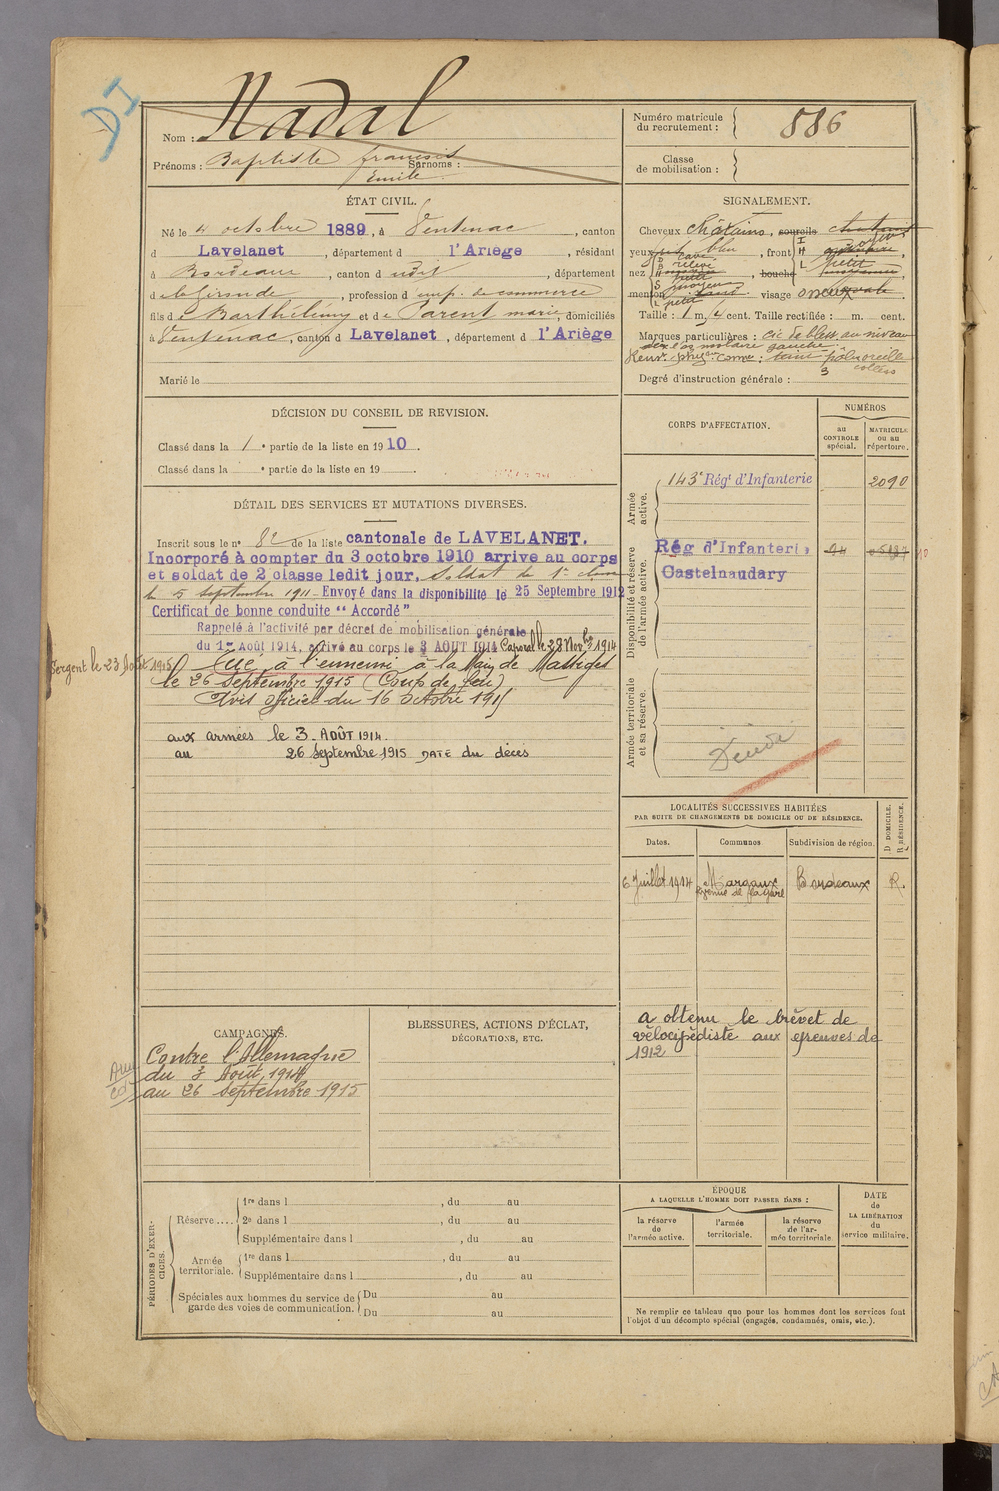 DI
Nom : Nadal
Prénoms : Baptiste françois Surnoms :
Emile
Numéro matricule
du recrutement : 886
Classe
de mobilisation :
ÉTAT CIVIL.
Né le 4 octobre 1889, à Ventenac, canton
d Lavelanet, département d l'Ariège, résidant
à Bordeaux, canton d udit, département
d e la Gironde, profession d' emp. de commerce
fils d e Barthélemy et d e Parent marie, domiciliés
à Ventenac, canton d Lavelanet, département d l'Ariège
Marié le
SIGNALEMENT.
Cheveux châtains, sourcils châtains
yeux bleu, front
nez relevé, bouche
menton, visage ovale
Taille : 1 m. cent. Taille rectifiée : m. cent.
Marques particulières : cic de bless. au niveau
gauche
Degré d'instruction générale : 3
DÉCISION DU CONSEIL DE REVISION.
Classé dans la 1e partie de la liste en 1910.
Classé dans la e partie de la liste en 19
DÉTAIL DES SERVICES ET MUTATIONS DIVERSES.
Inscrit sous le no 82 de la liste cantonale de LAVELANET.
Incorporé à compter du 3 octobre 1910 arrive au corps
et soldat de 2 classe ledit jour, soldat de 1re classe
le 5 septembre 1911 - Envoyé dans la disponibilité le 25 Septembre 1912
Certificat de bonne conduite "Accordé"
Rappelé à l'activité par décret de mobilisation générale
du 1er Août 1914, arrivé au corps le 3 AOUT 1914 Caporal le 29 Novbre 1914
Sergent le 23 Août 1915
Tué à l'ennemi à la Main de Massiges
le 26 Septembre 1915 (Coup de feu)
Avis officiel du 16 octobre 1915
aux armées le 3. AOÛT 1914.
au 26 Septembre 1915 DATE du décès
CORPS D'AFFECTATION.
NUMÉROS
au
CONTROLE
spécial.
MATRICULE
ou au
répertoire.
Armée
active.
143e Régt d'Infanterie 2090
Disponibilité et réserve
de l'armée active.
Rég d'Infanterie
Castelnaudary
Armée territoriale
et sa réserve.
LOCALITÉS SUCCESSIVES HABITÉES
PAR SUITE DE CHANGEMENTS DE DOMICILE OU DE RÉSIDENCE.
Dates.
Communes
Subdivision de région.
D DOMICILE.
R RÉSIDENCE.
6 Juillet 1914 Margaux Bordeaux R.
Avenue de la Gare
a obtenu le brevet de
vélocipédiste aux épreuves de
1912
CAMPAGNES.
Contre l'Allemagne
du 3 Août 1914
au 26 Septembre 1915
BLESSURES, ACTIONS D'ÉCLAT,
DÉCORATIONS, ETC.
PÉRIODES D'EXER-
CICES.
Réserve....
1re dans l , du au
2e dans l , du au
Supplémentaire dans l , du au
Armée
territoriale.
1re dans l , du au
Supplémentaire dans l , du au
Spéciales aux hommes du service de
garde des voies de communication.
Du au
Du au
ÉPOQUE
A LAQUELLE L'HOMME DOIT PASSER DANS :
la réserve
de
l'armée active.
l'armée
territoriale.
la réserve
de l'ar-
mée territoriale
DATE
de
LA LIBÉRATION
du
service militaire.
Ne remplir ce tableau que pour les hommes dont les services font
l'objet d'un décompte spécial (engagés, condamnés, omis, etc.).